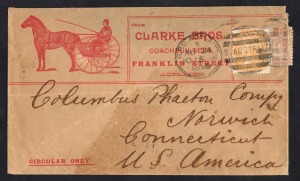 FROM
CLARKE BROS.
COACHBUILDERS
FRANKLIN STREET
Columbus Phaeton Compy
Norwich
Connecticut
U.S. America
CIRCULAR ONLY.